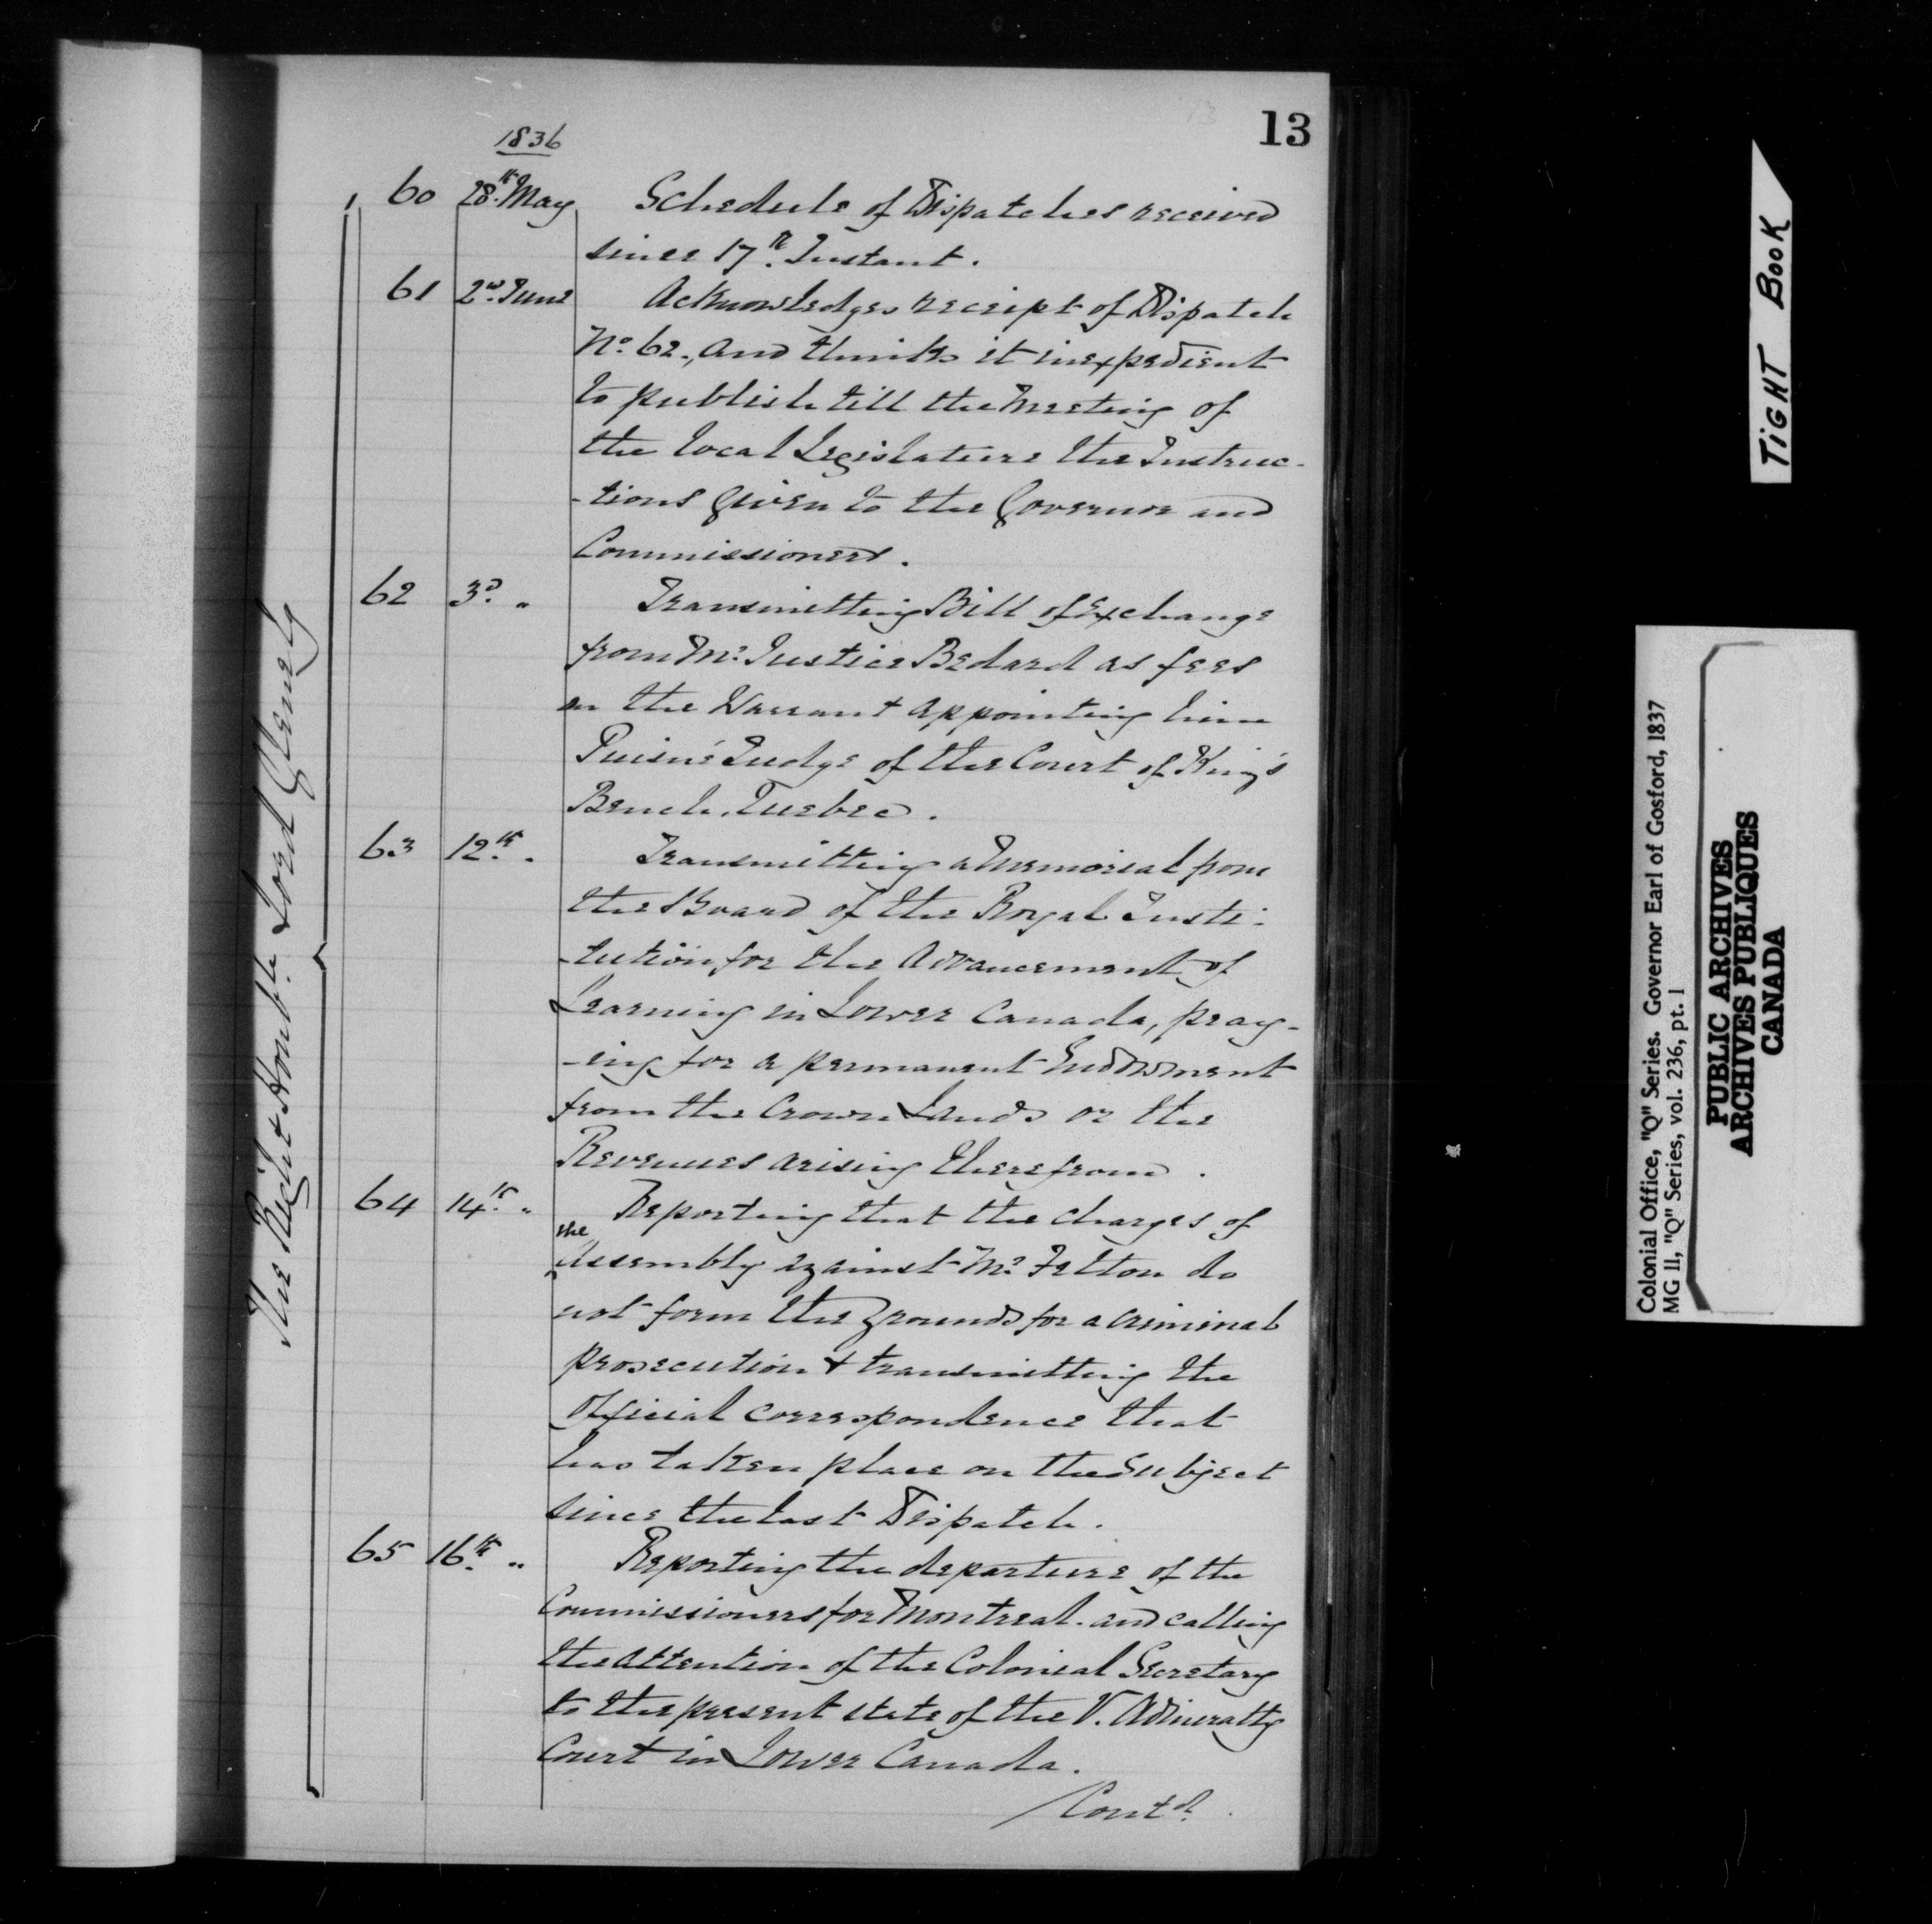 13
1836
60 28th May Schedule of Dispatches received
since 17th Instant.
61 2nd June Acknowledges receipt of Dispatch
No. 62., and thinks it inexpedient
to publish till the Meeting of
the local Legislature the Instruc-
-tions given to the Governor and
Commissioners.
62 3d. " Transmitting Bill of Exchange
from Mr. Justice Bedard as fees
on the Warrant appointing him
Puisné Judge of the Court of King's
Bench, Quebec.
63 12th. " Transmitting a Memorial from
the Board of the Royal Insti-
-tution for the Advancement of
Learning in Lower Canada, pray-
-ing for a permanent Endowment
from the Crown Lands or the
Revenues arising therefrom.
64 14th. " Reporting that the charges of
the
Assembly against Mr. Felton do
not form the grounds for a criminal
prosecution & transmitting the
Official correspondence that
has taken place on the Subject
since the last Dispatch.
65 16th. " Reporting the departure of the
Commissioners for Montreal. and calling
the attention of the Colonial Secretary
to the present state of the V. Admiralty
Court in Lower Canada.
Contd.
The Right Honble. Lord Glenelg
TIGHT BOOK
Colonial Office, "Q" Series. Governor Earl of Gosford, 1837
MG 11, "Q" Series, vol. 236, pt. 1
PUBLIC ARCHIVES
ARCHIVES PUBLIQUES
CANADA